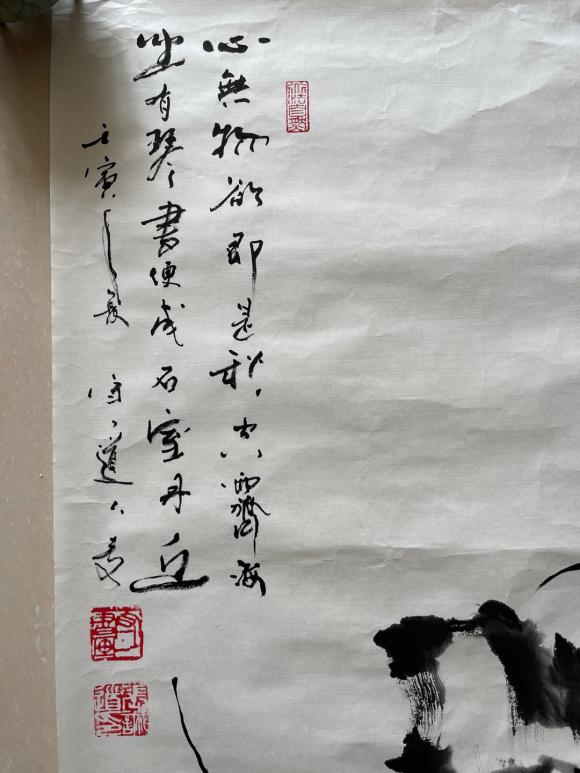 心無物欲即是秋空霽海
坐有琴書便成石室丹丘
壬寅之夏 道人